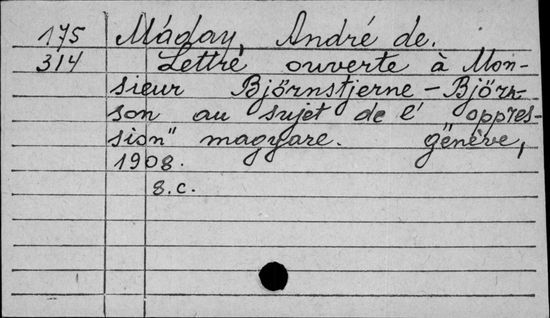 175 Máday, André de.
314 Lettre ouverte à Mon-
sieur Björnstjerne-Björn-
son au sujet de l' "oppres-
sion" magyare. Genève,
1908.
8.c.